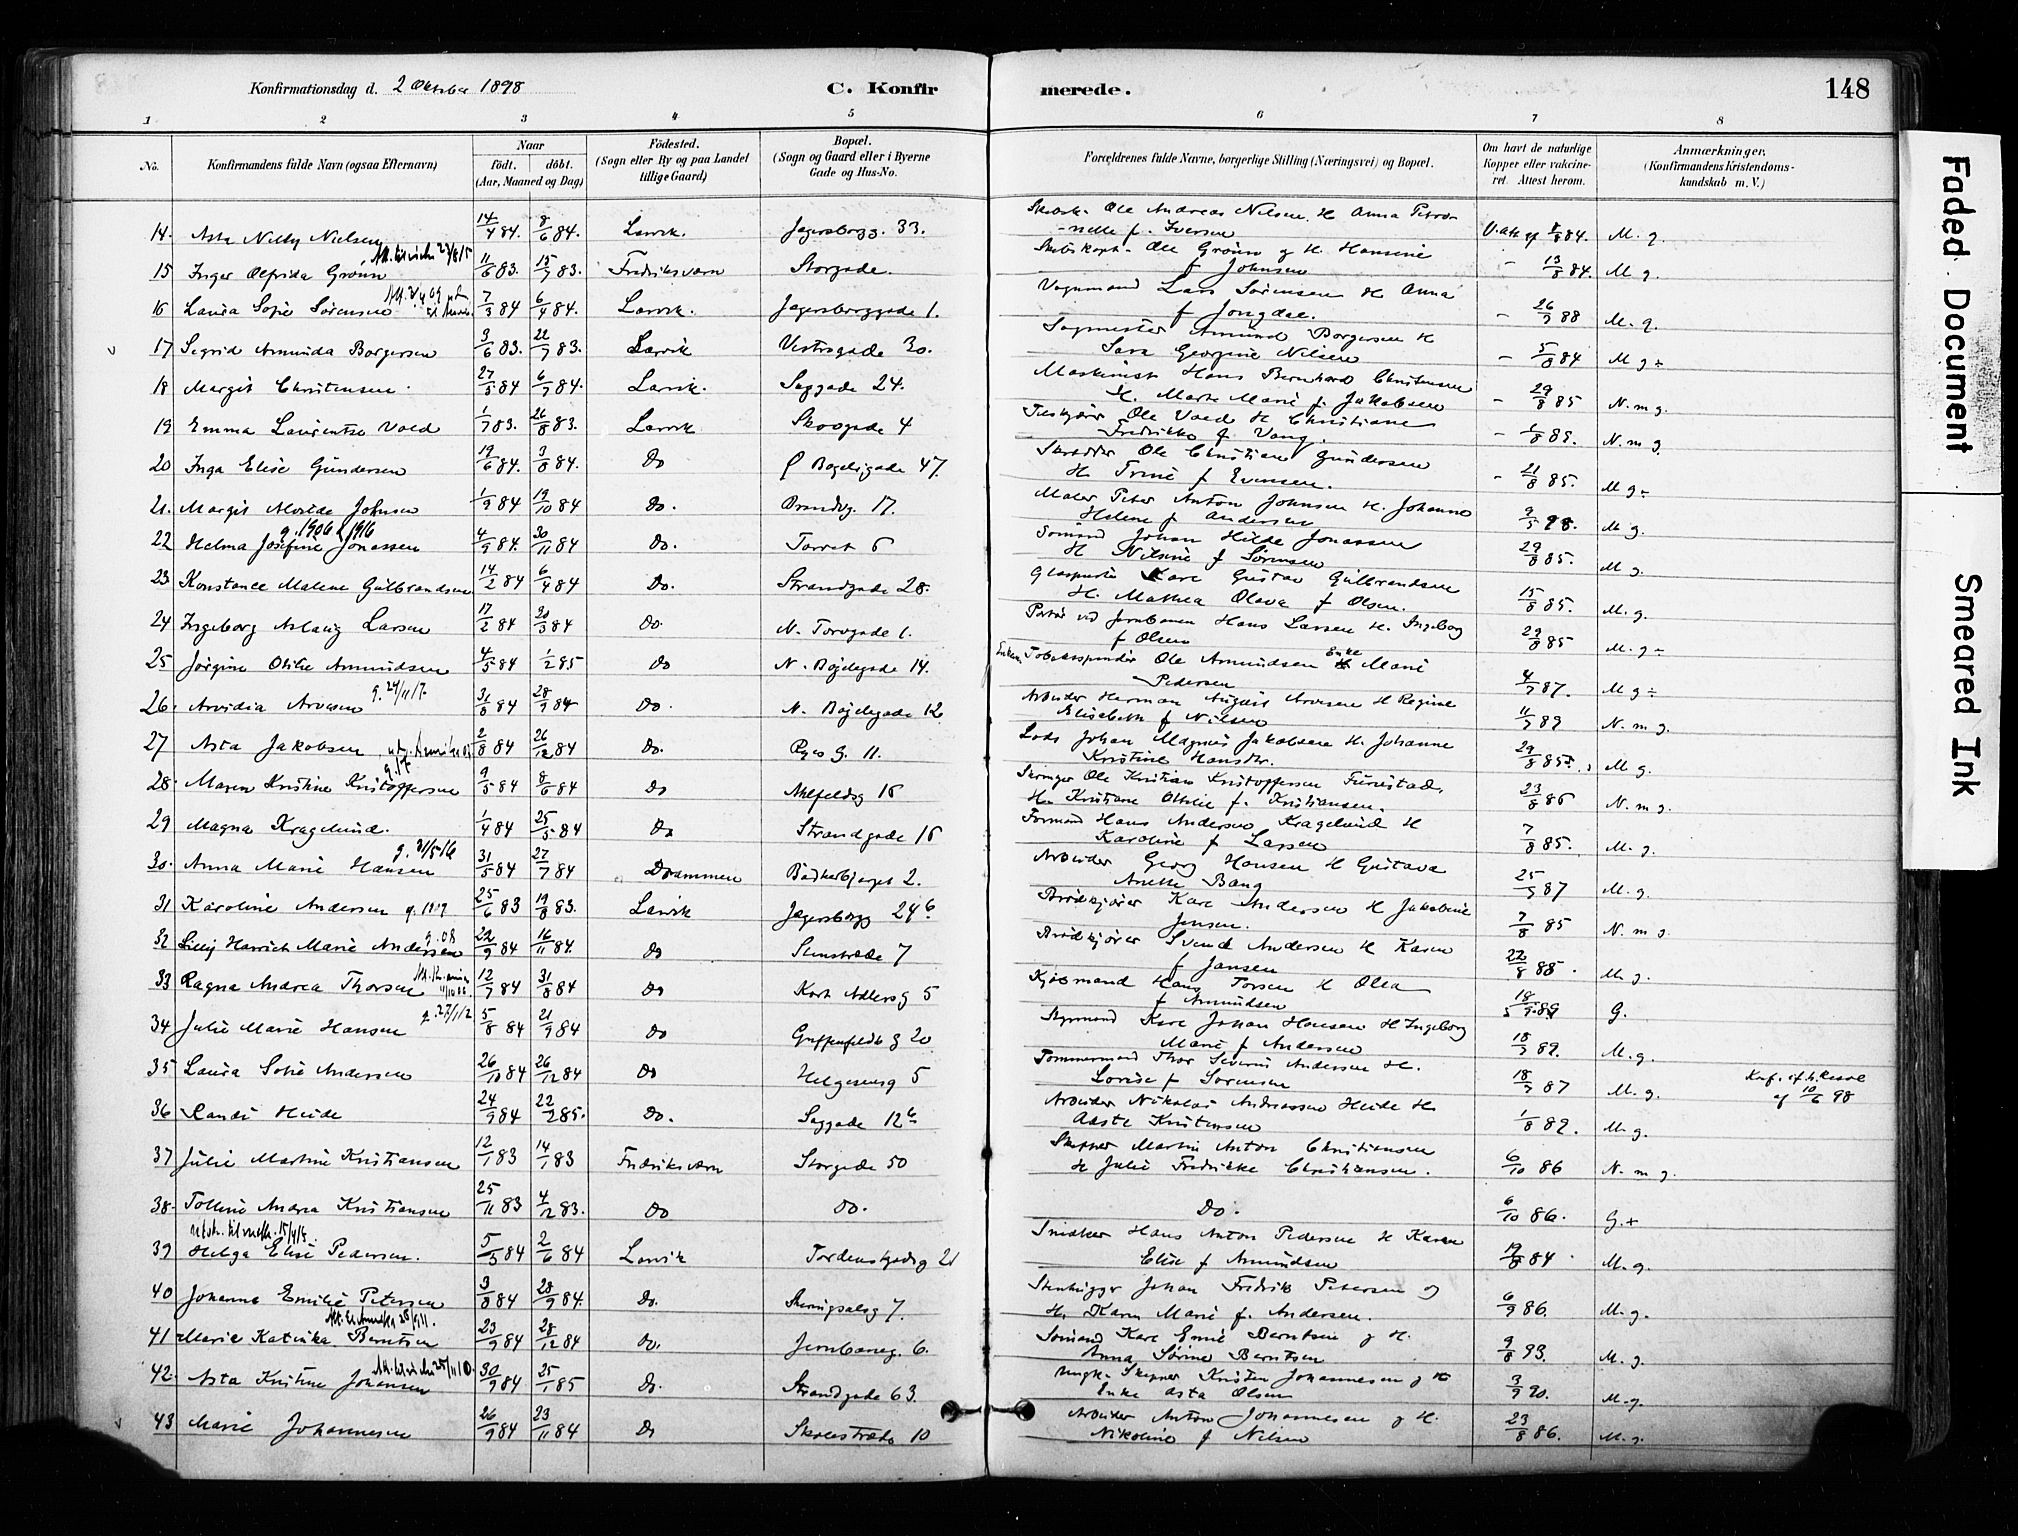 Konfirmationsdag d. 2 Oktober 1898 C. Konfir merede. 148
1 2 3 4 5 6 7 8
No. Konfirmandens fulde Navn (ogsaa Efternavn) Naar født. døbt. (Aar, Maaned og Dag) Fødested. (Sogn eller By og paa Landet tillige Gaard) Bopæl. (Sogn og Gaard eller i Byerne Gade og Hus-No. Forældrenes fulde Navne, borgerlige Stilling (Næringsvei) og Bopæl. Om havt de naturlige Kopper eller vaccineret. Attest herom. Anmærkninger. (Konfirmandens Kristendomskundskab m. V.)
14. Asta Nelly Nielsen 14/4 84. 8/6 84. Larvik. Jegersborgg. 33. Ole Andreas Nilsen. H Anna Petronelle f. Iversen 84. M. g.
15 Inger Alfrida Grønn 11/6 83. 15/7 83. Fredriksværn Storgade. Ole Grønn og H. Hansine f Johnsen 13/8 84. M g.
16 Laura Sofie Sørensen 7/3 84 6/4 84. Larvik. Jegersborggade 1. Vognmand Lars Sørensen H Anna f Jongdal. 26/9 88 M. g.
17 Sigrid Amunda Borgersen 3/6 83. 22/7 83. Larvik Vestregade 30. Sagmester Amund Borgersen H Sara Georgine Nilsen 5/8 84 M g÷
18 Margit Christensen. 27/3 84 6/7 84. Larvik. Saggade 24. Maskinist Hans Bernhard Christensen H. Marte Marie f. Jakobsen 29/8 85 N. m g.
19 Emma Laurentze Vold 1/7 83. 26/8 83. Larvik. Skovgade 4 Ole Vold H Christiane Fredrikke f. Vang. 1/8 85. N. m g.
20 Inga Elise Gundersen 19/6 84. 3/8 84. Do Bøgelsgade 47. Skrædder Ole Christian Gundersen H. Trine f Evensen. 21/8 85. M g÷
21. Margit Alvilde Johnsen 1/9 84 19/10 84 Do. Brandvg. 17. Maler Peter Anton Johnsen H. Johanne Helene f Andersen 9/5 98. M g.
g. 1906 & 1916
22 Helma Josefine Jonassen 4/9 84. 30/11 84 Do. Torvet 6 Sømand Johan Hilde Jonassen H Nilsine f Sørensen 29/8 85. M g.
23 Konstance Malene Gulbrandsen 14/2 84 6/4 84 Do. Strandgade 28. Karl Gustav Gulbrandsen H. Mathea Olava f Olsen. 15/8 85. M. g.
24 Ingeborg Aslaug Larsen 17/2 84 30/3 84 Do. N. Torvgade 1. Portør ved Jernbanen Hans Larsen H. Ingeborg f Olsen 29/8 85 M. g÷
25 Jørgine Otilie Amundsen 4/5 84 1/2 85 Do N. Bøjelgade 14. Tobaksspinder Ole Amundsen Enke Marie Pedersen 4/7 87. M g÷
26. Arvidia Arvesen g. 24/11/17. 31/8 84 28/9 84 Do. N. Bøjelegade 12. Arbeider Herman August Arvesen H Regine Elisabeth f Nilsen 11/7 89 N. m g.
27 Asta Jakobsen 2/8 84 26/12 84 Do. g. 11. Lods Johan Magnus Jakobsen H. Johanne Kristine Hansdtr. 29/8 85. M g.
28. Maren Kristine Kristoffersen 9/5 84 8/6 84 Do Ahlfeldsg 16 Ole Kristian Kristoffersen Furustad. H. Kristiane Ottilie f. Kristiansen. 23/8 86 N. m g.
29 Magna Kragelund. 1/4 84 25/5 84 Do Strandgade 16 Formand Hans Andersen Kragelund H Karoline f Larsen 7/8 85. M. g.
30. Anna Marie Hansen g. 31/5 16 31/5 84 27/7 84 Drammen 2. Arbeider Georg Hansen H Gustava Anette Bang 25/5 87 M. g.
31 Karoline Andersen g. 1909 25/6 83 19/8 83. Larvik Jegersborgg 24b Brødkjører Karl Andersen H Jakobine Jensen. 7/8 85 N. m g.
32 Lilly Henriette Marie Andersen g. 08 22/9 84 16/11 84. Do Stenstræde 7 Brødkjører Svend Andersen H Karen f Jansen 22/8 88. M. g.
33 Ragna Andrea Thorsen 12/7 84 31/8 84 Do Kort Adlersg 5 Kjøbmand Hans Torsen H Olea f Amundsen 18/9 89 G.
g. 27/1/12
34 Julie Marie Hansen 5/8 84 21/9 84 Do Griffenfeldts g 20 Styrmand Karl Johan Hansen H Ingeborg Marie f Andersen 18/9 89. M. g.
35 Laura Sofie Andersen 26/10 84 26/12 84 Do Helgesensg 5 Tømmermand Thor Severin Andersen H. Lovise f Sørensen 18/9 87 M. g. Konf. af 10/6 98
36 Randi Heide 24/9 84 22/2 85. Do. Saggade 12b Arbeider Nikolai Andreassen Heide H. Adste Kristensen 1/8 89. M. g.
37 Julie Martine Kristiansen 12/1 83 14/1 83 Fredriksværn Storgade 50 Skipper Martin Anton Christiansen H Julie Fredrikke Christiansen. 6/10 86 N. m g.
38. Tolline Andrea Kristiansen 25/11 83 4/12 83. Do Do. Do. 6/10 86. G.+
39 Helga Elise Pedersen. 5/3 84 2/6 84 Larvik Tordenskjoldsg 21 Snidker Hans Anton Pedersen H Karen Elise f Amundsen 19/8 84 M. g.
40 Johanne Emilie Petersen 3/8 84 28/9 84. Do. Skiringsalsg 7. Stenhugger Johan Fredrik Petersen og H. Karen Marie f. Andersen. 6/9 86. M. g.
41 Marie Katinka Berntsen 23/9 84 28/12 84 Do. Jernbaneg. 6. Sømand Karl Emil Berntsen og H. Anna Sørine Berntsen 9/8 93. M. g.
42. Asta Kristine Johansen 30/9 84 25/1 85 Do. Strandgade 63. Skipper Kristen Johannesen og H Enke Asta Olsen 3/9 90. M. g.
43 Marie Johannesen 26/9 84 23/11 84 Do Skolestræde 10 Arbeider Anton Johannesen og H. Nikoline f Nilsen 23/8 86. M. g.
Faded Document
Smeared Ink